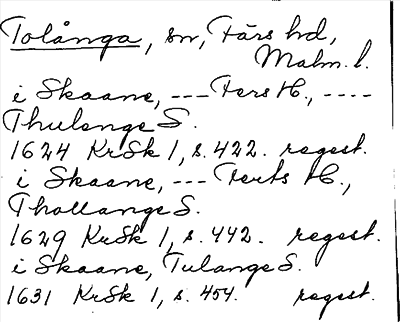 Tolånga, sn, Färs hd,
Malm. l.
i Skaane, --- Fers H., ----
Thulenge S.
1624 KrSk 1, s. 422. regest.
i Skaane, --- Ferts H.,
Thollange S.
1629 KrSk 1, s. 442. regest.
i Skaane, Tulange S.
1631 KrSk 1, s. 454. regest.